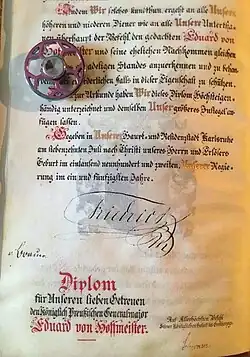 Indem Wir solches kundthun, ergeht an alle Unsere
höheren und niederen Diener wie an alle Unsere Untertha-
nen überhaupt der Befehl den gedachten Eduard von
Hoffmeister und seine ehelichen Nachkommen gleichen
adeligen Standes anzuerkennen und zu
erforderlichen Falls in dieser Eigenschaft zu schützen.
Zur Urkunde haben Wir dieses Diplom Höchsteigen-
händig unterzeichnet und demselben Unser größeres Insiegel an-
fügen lassen.
Gegeben in Unserer Haupt- und Residenzstadt Karlsruhe
am siebenzehnten Juli nach Christi unseres Herrn und Erlösers
Geburt im eintausend neunhundert und zweiten, Unserer Regie-
rung im ein und fünfzigsten Jahre.
Friedrich
Diplom
für Unseren lieben Getreuen
den Königlich Preußischen Generalmajor
Eduard von Hoffmeister.
Auf Allerhöchsten Befehl
Seiner Königlichen Hoheit des Großherzogs